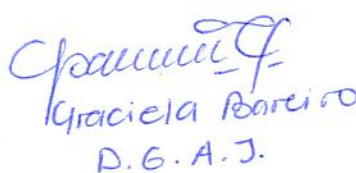 Graciela Bareiro
D.G.A.J.